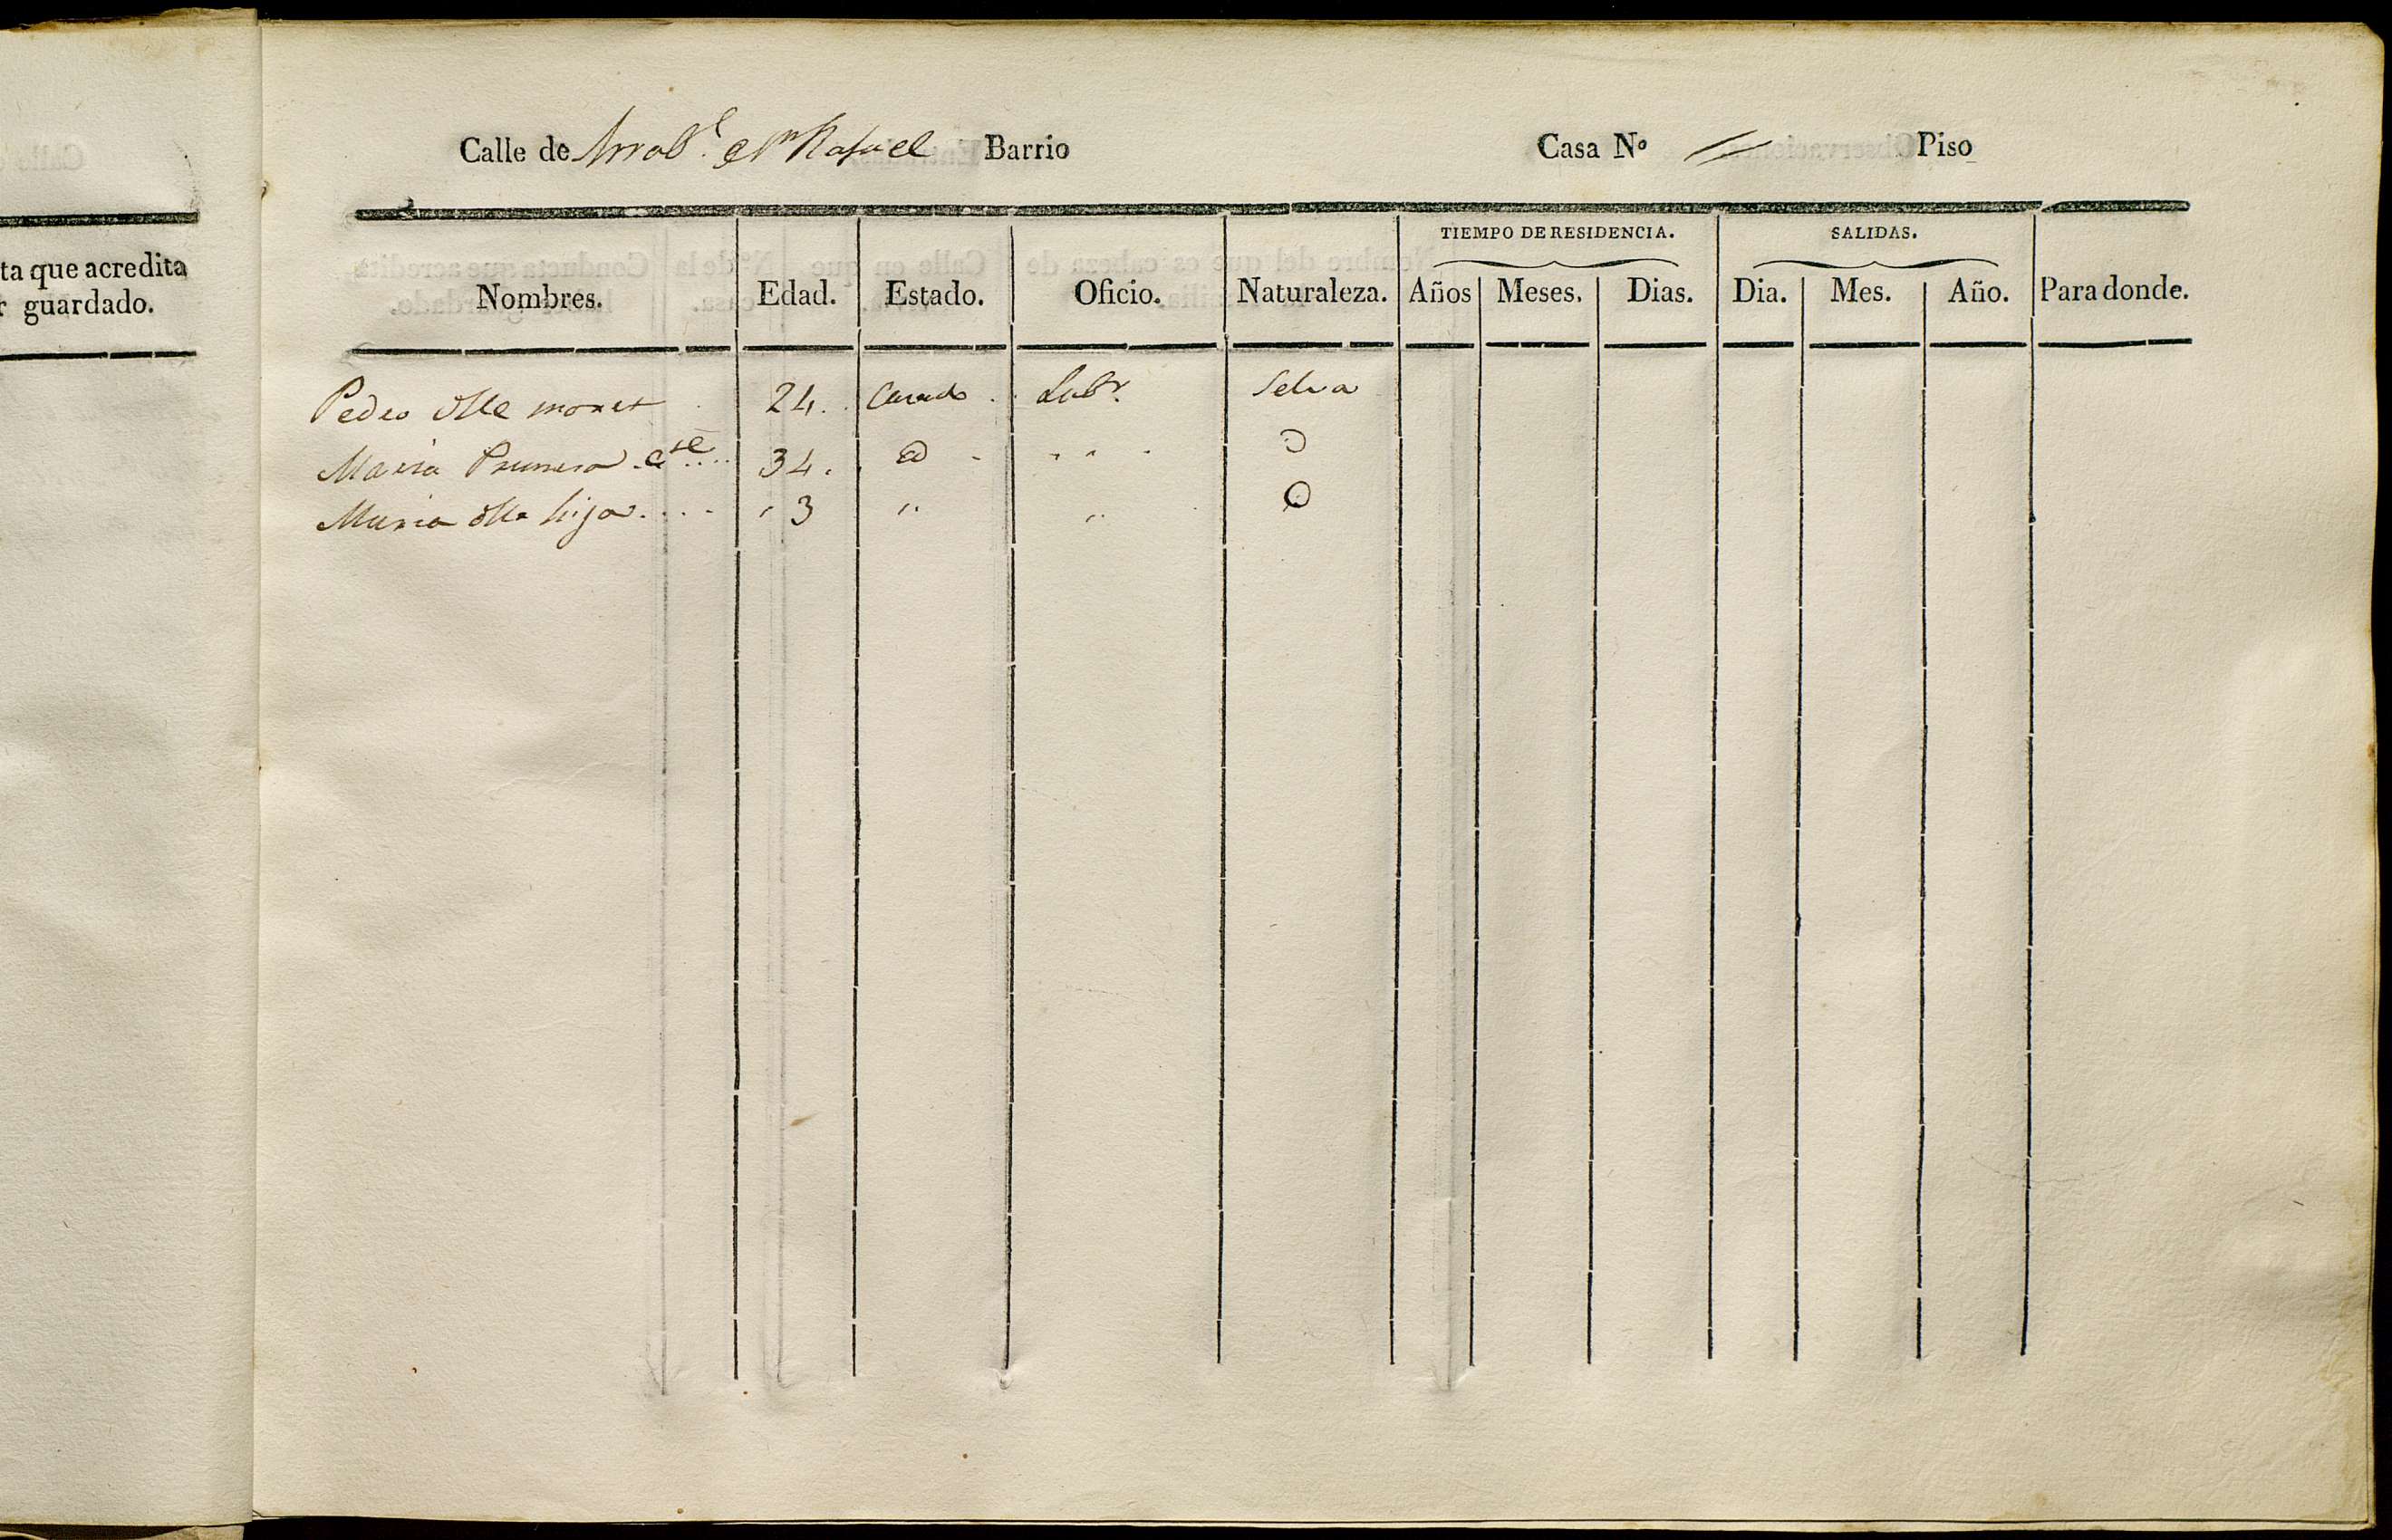 ta que acredita
r guardado.
Calle de Arrabl. Sn Rafael Barrio Casa No Piso
TIEMPO DE RESIDENCIA. SALIDAS.
Nombres. Edad. Estado. Oficio. Naturaleza. Años Meses. Dias. Dia. Mes. Año. Para donde.
Pedro Olle 24. Casado Labr. Selva
Maria 34.
Maria Olle hija 3